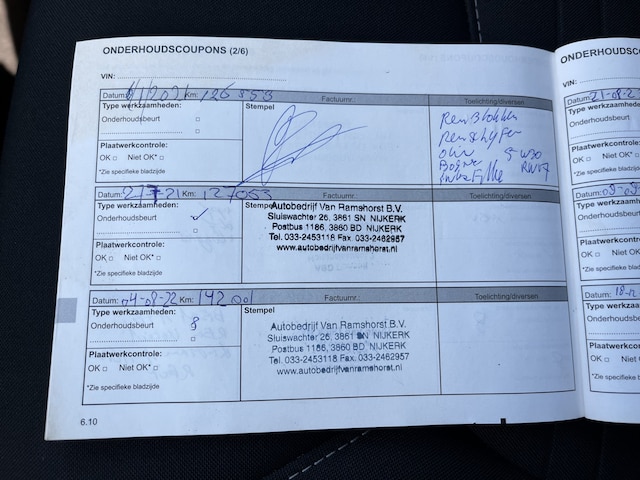 ONDERHOUDSCOUPONS (2/6)
VIN:
Datum: Km: 126 853 Factuurnr.: Toelichting/diversen
Type werkzaamheden:
Stempel
Onderhoudsbeurt
Plaatwerkcontrole:
OK Niet OK*
*Zie specifieke bladzijde
Remblokken
Remschijven
Olie 5W30
Datum: 27-7-21 Km: 127053 Factuurnr.: Toelichting/diversen
Type werkzaamheden:
Onderhoudsbeurt
Stempel
Autobedrijf Van Ramshorst B.V.
Sluiswachter 26, 3861 SN NIJKERK
Postbus 1186, 3860 BD NIJKERK
Tel. 033-2453118 Fax. 033-2462957
www.autobedrijfvanramshorst.nl
Plaatwerkcontrole:
OK Niet OK*
*Zie specifieke bladzijde
Datum: 04-08-22 Km: 142 001 Factuurnr.: Toelichting/diversen
Type werkzaamheden:
Onderhoudsbeurt
Stempel
Autobedrijf Van Ramshorst B.V.
Sluiswachter 26, 3861 SN NIJKERK
Postbus 1186, 3860 BD NIJKERK
Tel. 033-2453118 Fax. 033-2462957
www.autobedrijfvanramshorst.nl
Plaatwerkcontrole:
OK Niet OK*
*Zie specifieke bladzijde
6.10
ONDERHOUDSC
VIN:
Datum: 21-08-2
Type werkza
Onderhoudsb
Plaatwerkco
OK
*Zie specifieke
Datum:
Type werkz
Onderhouds
Plaatwerkc
OK
*Zie specifiek
Datum:
Type werk
Onderhoud
Plaatwerk
OK
*Zie specifi